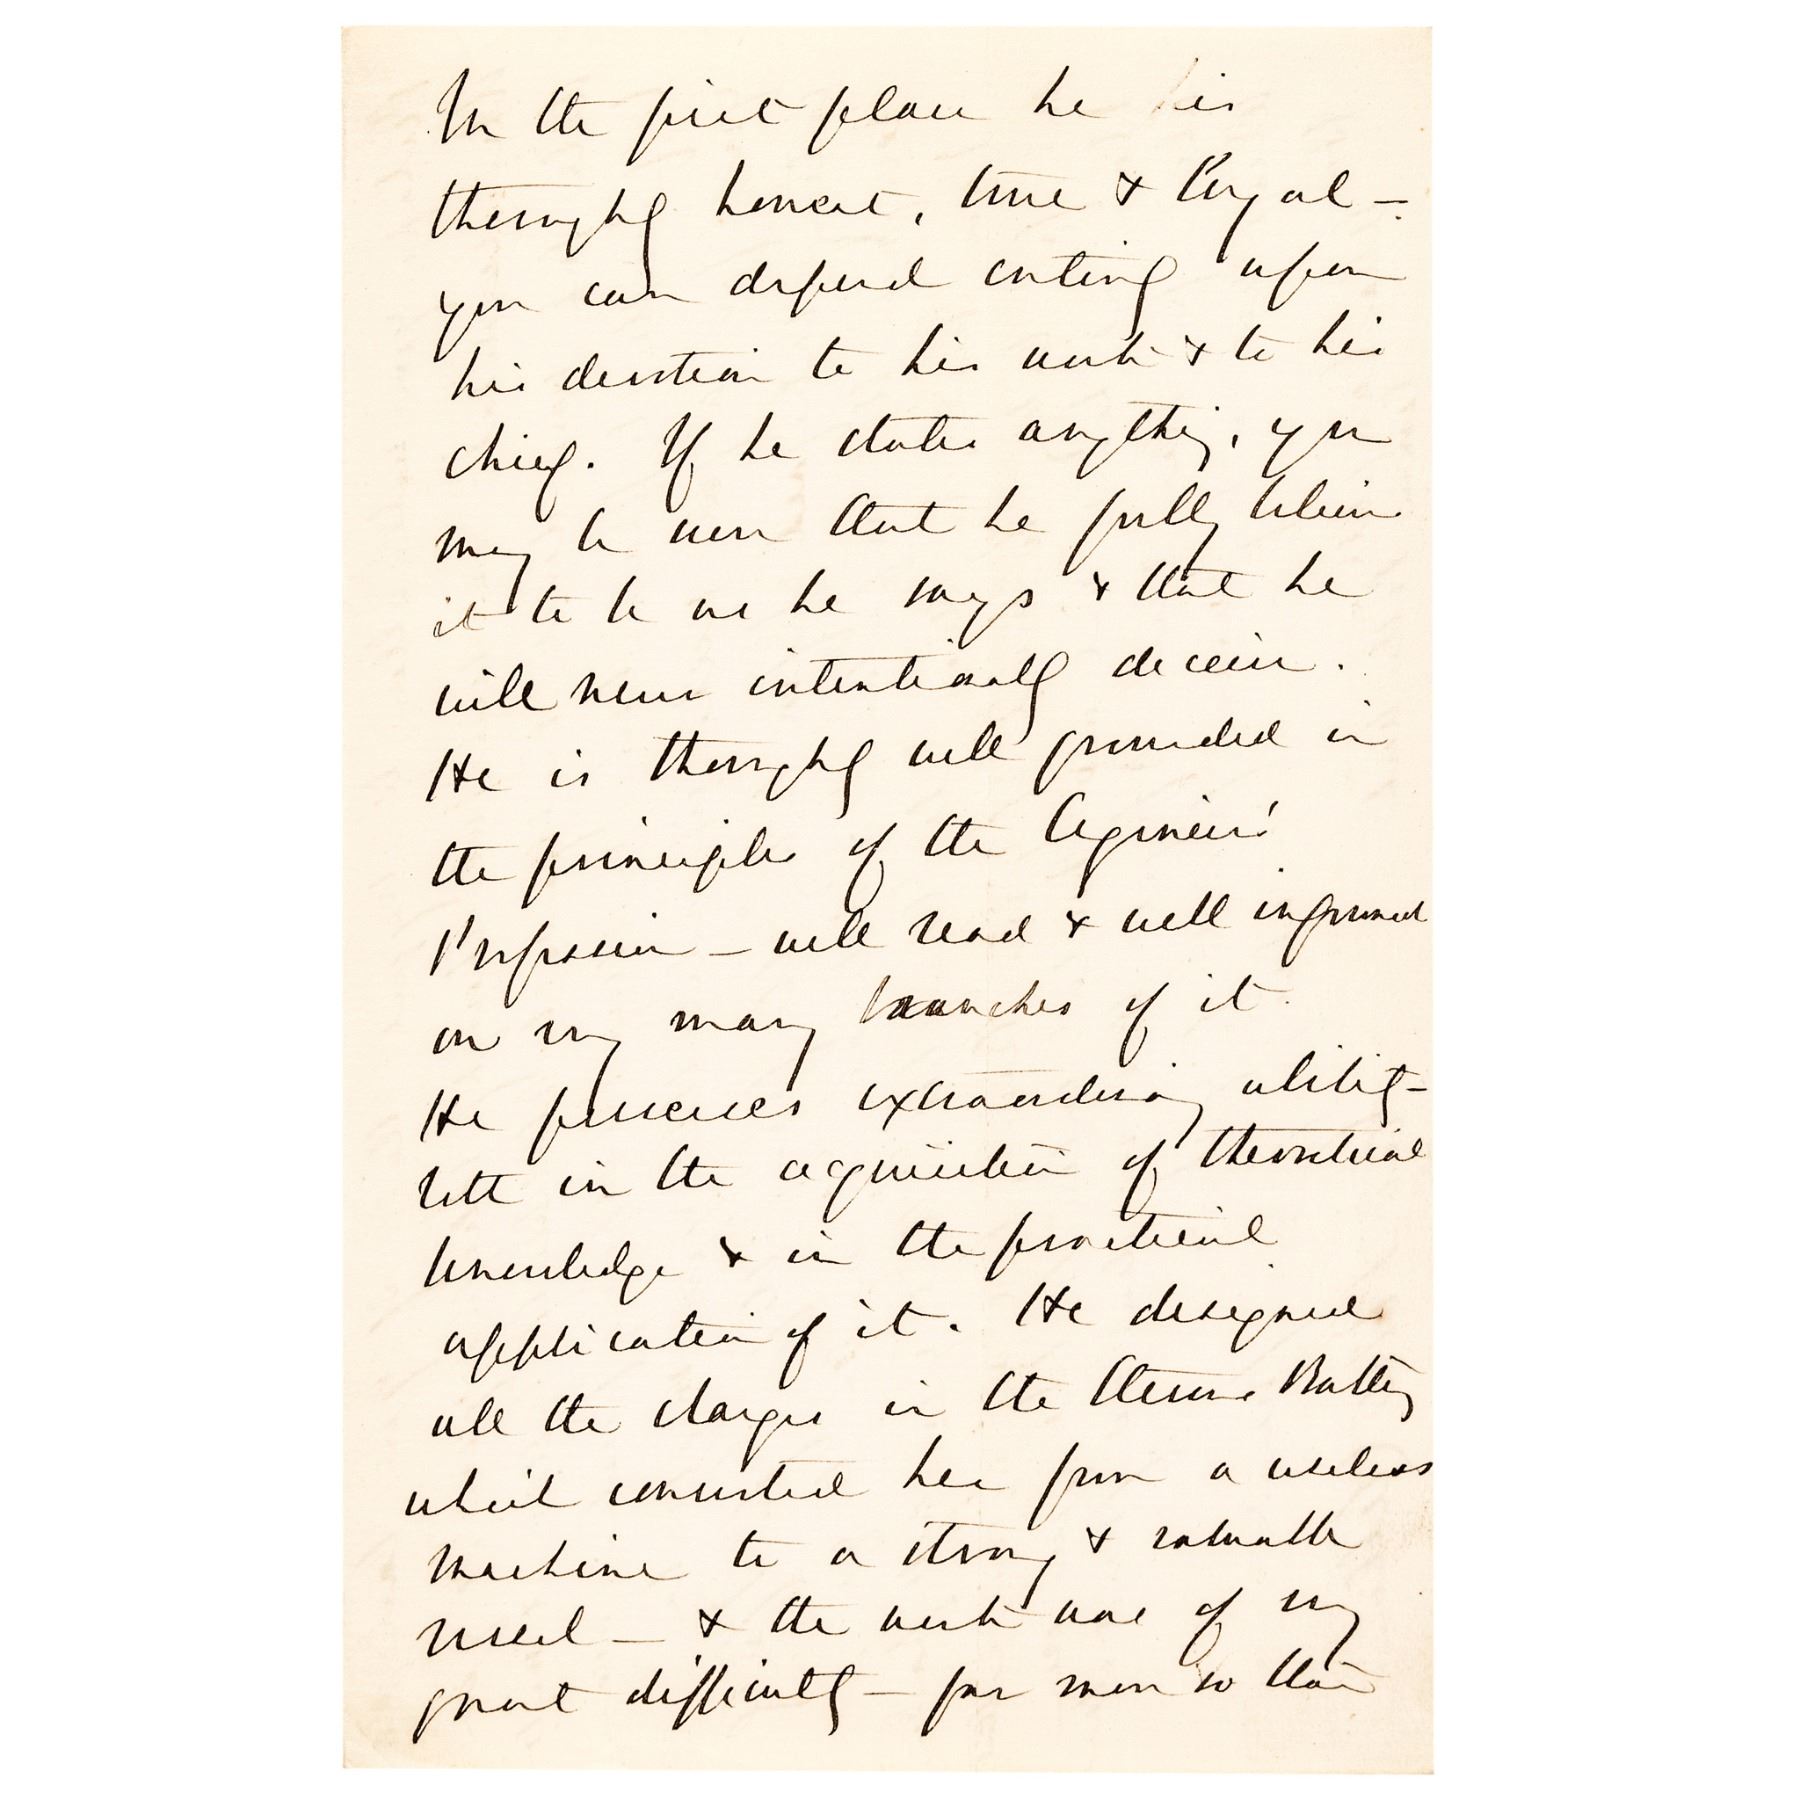 In the first place he is
thoroughly honest, true & loyal -
you can depend entirely upon
his devotion to his work & to his
chief. If he states anything, you
may be sure that he fully believes
it to be as he says & that he
will never intentionally deceive.
He is thoroughly well grounded in
the principles of the Engineers'
Profession - well read & well informed
on very many branches of it.
He possesses extraordinary ability -
both in the acquisition of theoretical
knowledge & in the practical
application of it. He designed
all the changes in the Stevens Battery
which converted her from a useless
machine to a strong & valuable
vessel - & the work was of very
great difficulty - far more so than